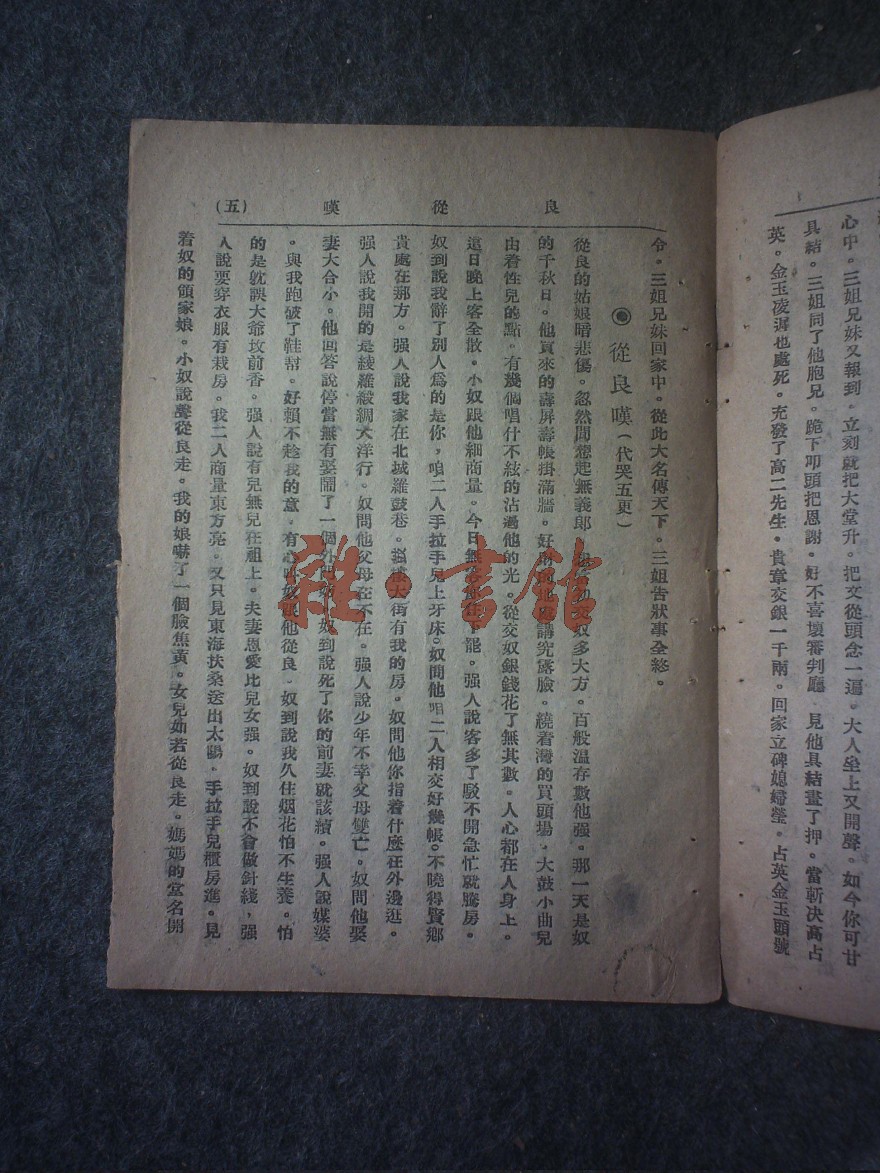 心中。三姐兄妹又報到。立刻就把大堂升。把文從頭念一遍。大人坐上又開聲。如今你可甘
具結。三姐同了他胞兄。跪下叩頭把恩謝。好不喜壞審判廳。見他具結畫了押。當斬決高占
英。金玉凌遲也處死。充發了高二先生。貴章交銀一千兩。回家立碑媳婦塋。占英金玉頭號
良從嘆 (五)
令。三姐兄妹回家中。從此大名傳天下。三姐告狀事全終。
◉從良嘆(代哭五更)
從良的姑娘暗悲傷。忽然間惹起無義郎。交奴多大方。百般温存數他强。那一天是奴
的千秋日。他買來的壽屏壽帳掛滿牆。好講究露臉。繞着灣的買頭塲。大鼓小曲兒
由着性兒的點。有幾個唱什不絃的沾過他的光。從交奴銀錢花了無其數。人心都在人身上。
這日晚上客全散。小奴跟他細商量。今日無下罷。强人說客多了駁不開急忙就騰房。
奴到說我辭了別人爲的是你，咱二人手拉手兒上牙床。奴問他咱二人相交好幾帳。不曉得賢鄉
貴處在那方。强人說我家在北城羅鼓巷。鼓樓大街有我的房。奴問他你指着什麼在外邊逛。
强人說我開的是綾羅緞綢大洋行。奴問他父母在不在。强人說少年不幸父母雙亡。奴問他娶
妻大合小。他回答說停當無有娶鬧了一個外奴到說死了你的前妻就該續。强人說媒婆
。與我跑破了鞋幇。好賴不趁我的意。有心叫奴跟他從良。奴到說我久住烟花怕不生養。怕
的是躭誤大爺坟前香。强人說有兒無兒在祖上。夫妻恩愛比兒女强。奴到說不會做針綫，强
人說要穿衣服有裁房。我二人商量東方亮。又只見東海扶桑送出太陽。手拉手兒櫃房進。見
着奴的領家娘。小奴說聲從良走。我的娘嚇了一個臉焦黃。女兒如若從良走。媽媽的堂名開
雜·書館